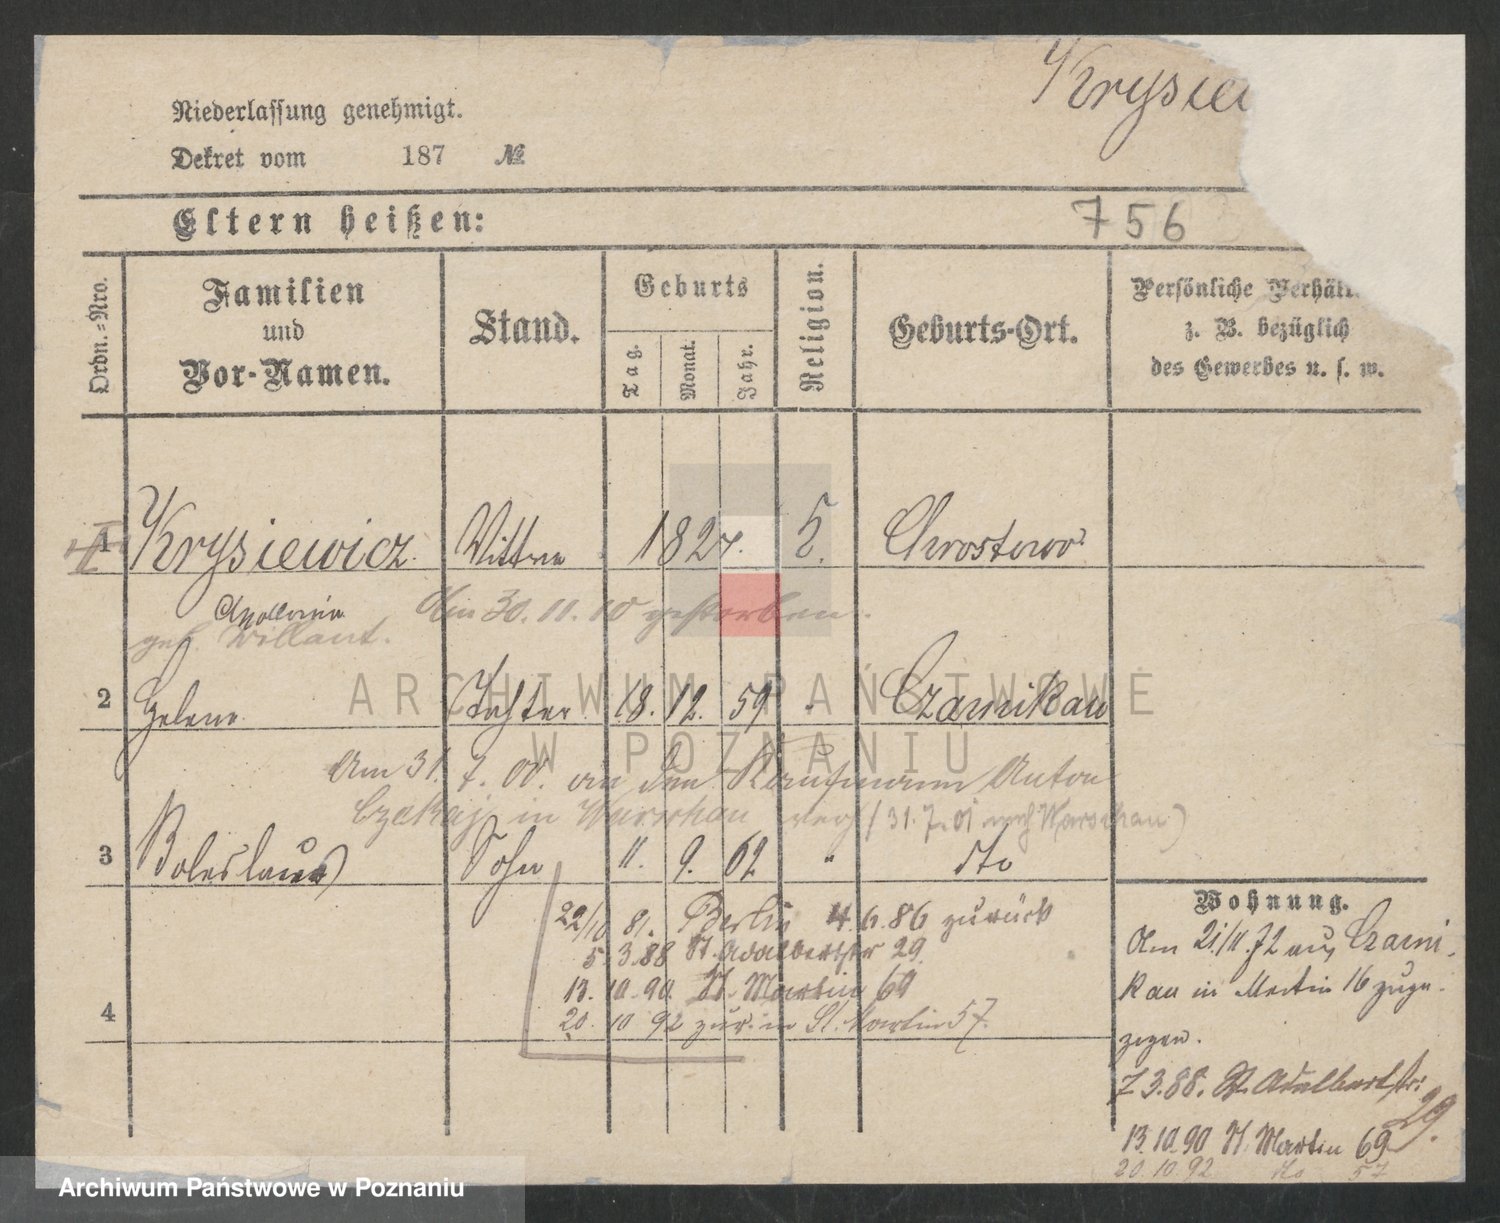 Krysie
Niederlassung genehmigt.
Dekret vom 187 №
Eltern heißen:
756
Ordn.=Nro.
Familien
und
Vor-Namen.
Stand.
Geburts
Tag.
Monat.
Jahr.
Religion.
Geburts-Ort.
Persönliche Verhält
z. B. bezüglich
des Gewerbes u. s. w.
1 Krysiewicz Wittwe 1827. Chrostowo
Apollonia
geb. Willant.
Am 30.11.10 gestorben.
2 Helene Tochter 18. 12. 59 Czarnikau
Am 31. 7. 00. an den Kaufmann Anton
in Warschau (31.7.01 nach Warschau)
3 Boleslaus Sohn 11. 9. 62 " dto
Wohnung.
22/10 81. Berlin 4.6.86 zurück
5 3.88 St. Adalbertstr 29.
13. 10. 90. St. Martin 69
4
20. 10 92 zur. in St. Martin 57.
Am 21/11.72 aus Czarni-
kau in Martin 16 zuge-
zogen.
7 3.88. St. Adalbertstr:
29.
13.10.90 St. Martin 69
20.10.92 do 57
ARCHIWUM PAŃSTWOWE
W POZNANIU
Archiwum Państwowe w Poznaniu